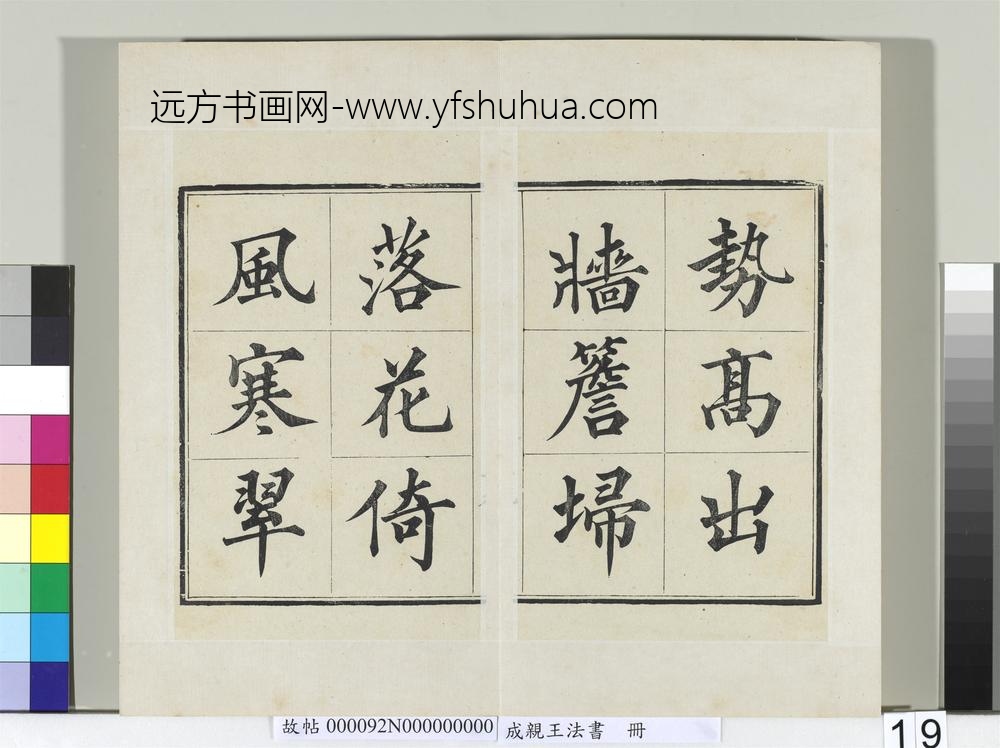 远方书画网-www.yfshuhua.com
勢高出
牆簷埽
落花倚
風寒翠
故帖 000092N000000000 成親王法書 冊
19